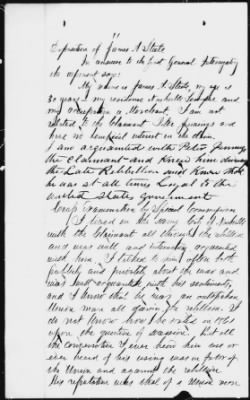 Deposition of James A State
In answer to the first General Interrogatory
the deponent says:
My name is James A State, my age is
30 years my residence
my occupation a Merchant. I am not
related to the Claimant
have no beneficial interest in the claim
I am acquainted with Peter
the Claimant and Knew him during
the Late Rebellion and Know that
he was at all times Loyal to the
United States government
Cross Examination by Special Commissioner
I lived on the same
with the Claimant all through the rebellion
and was well and intimately acquainted
with him. I talked to him often both
publicly and privately about the war and
was well acquainted with his sentiments,
and I Know that he was an outspoken
Union man all during the rebellion. I
do not Know how he voted in 1861
upon the question of But all
the conversation I ever heard him use or
ever heard of his using was in favor of
the Union and against the rebellion
His reputation was that of a Union man